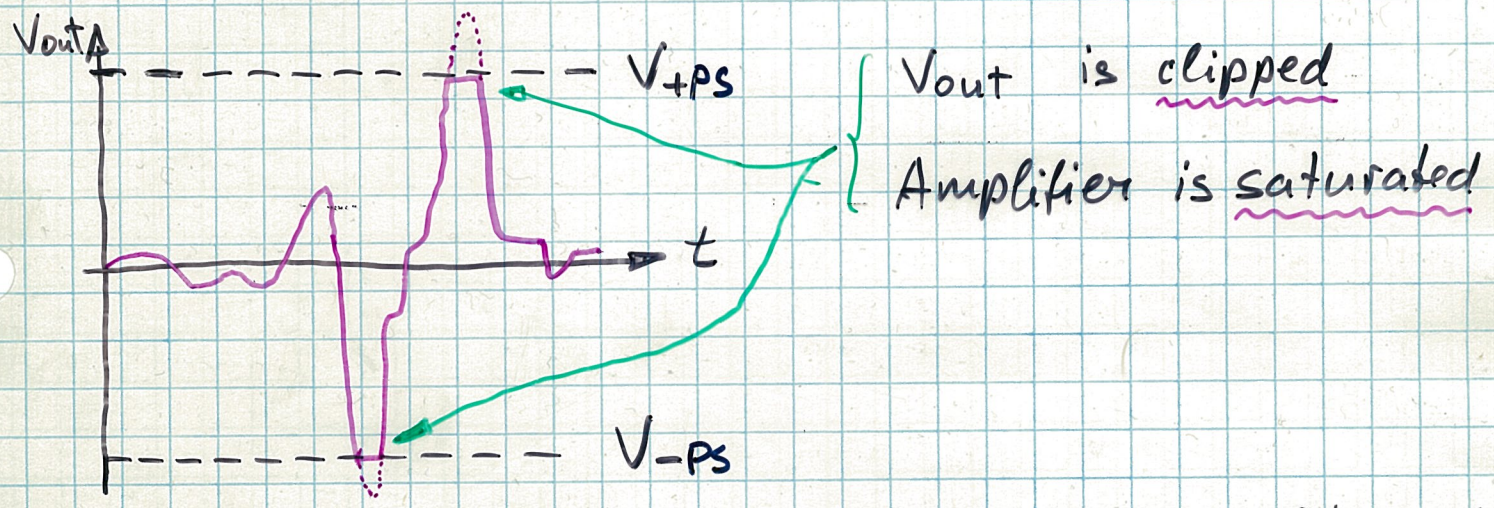 Vout
V+PS
Vout is clipped
Amplifier is saturated
t
V-PS